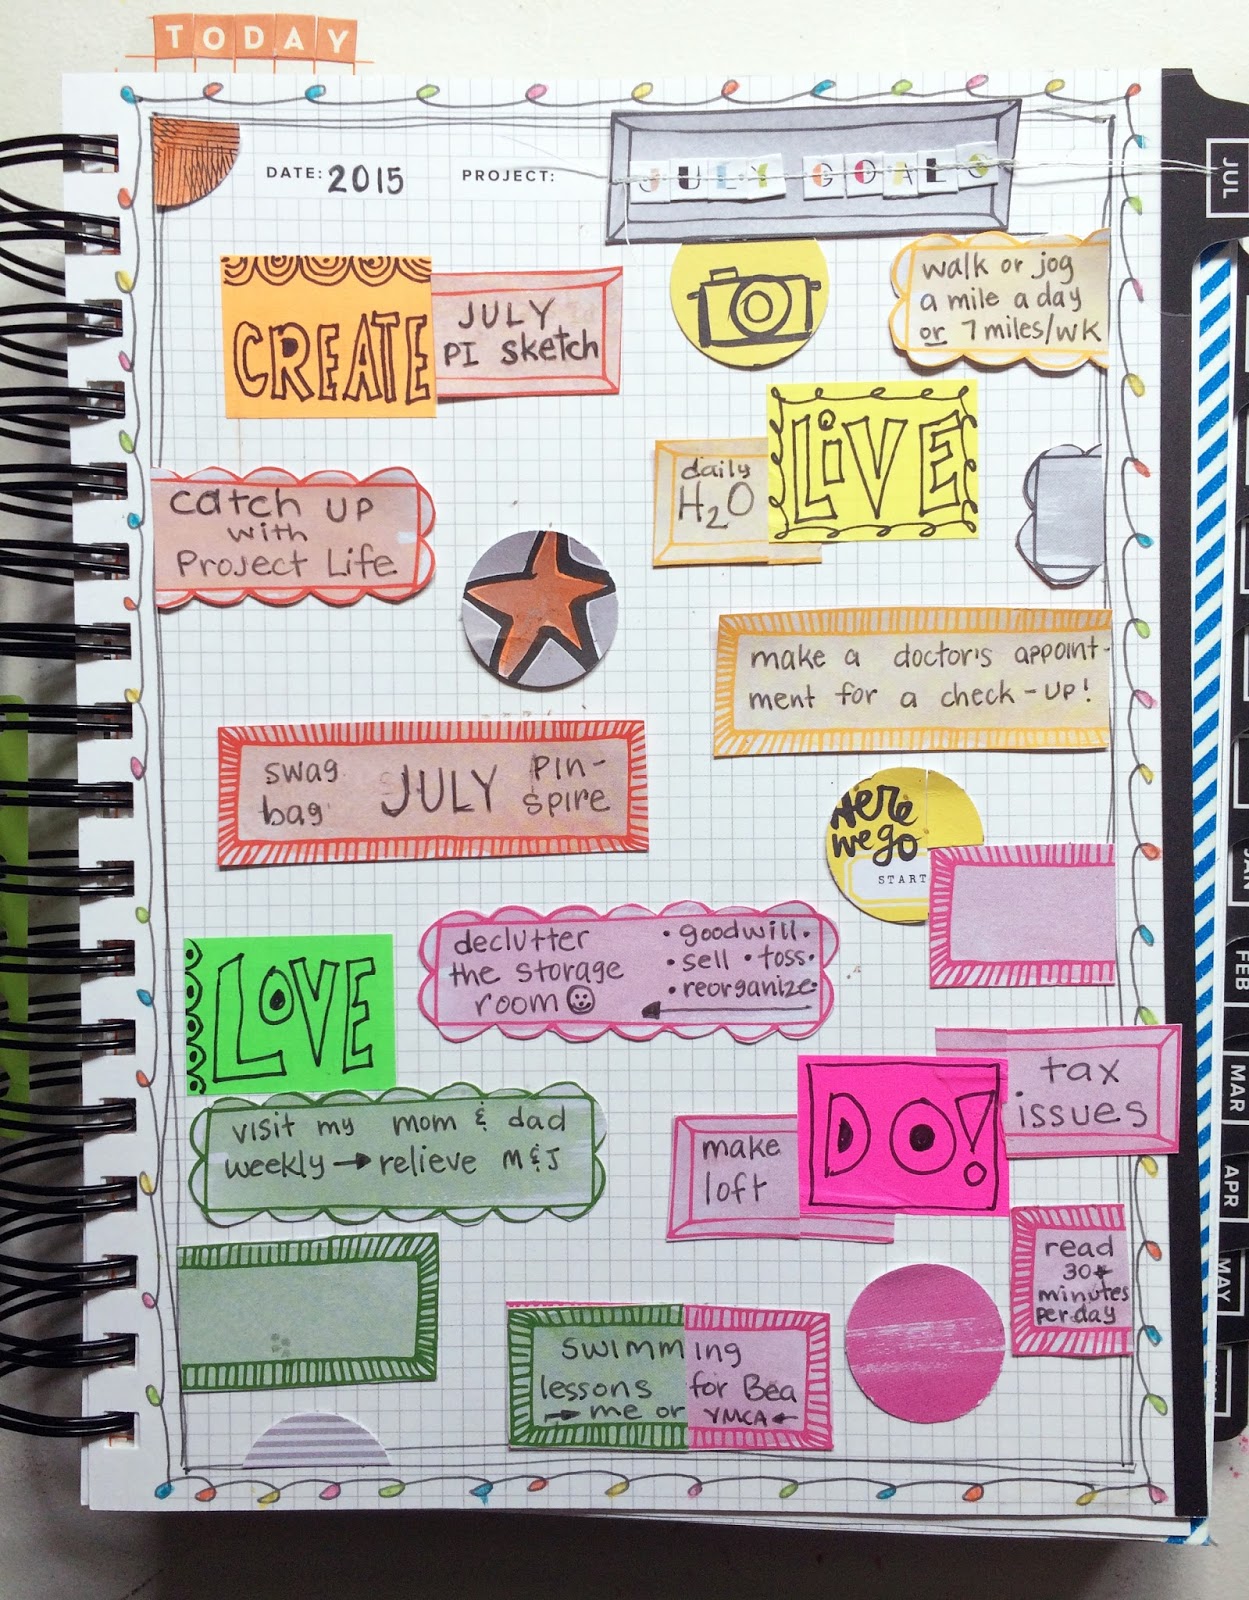 TODAY
DATE: 2015
PROJECT:
JULY GOALS
JUL
CREATE
JULY
PI sketch
walk or jog
a mile a day
or 7 miles/wk
LiVE
daily
H2O
catch up
with
Project Life
make a doctor's appoint-
ment for a check-up!
swag
bag
JULY
pin-
spire
Here
we go
START
declutter
the storage
room
• goodwill •
• sell • toss •
• reorganize •
LOVE
visit my mom & dad
weekly → relieve M&J
DO!
tax
issues
make
loft
read
30+
minutes
per day
swimming
lessons for Bea
→ me or YMCA ←
JAN
FEB
MAR
APR
MAY